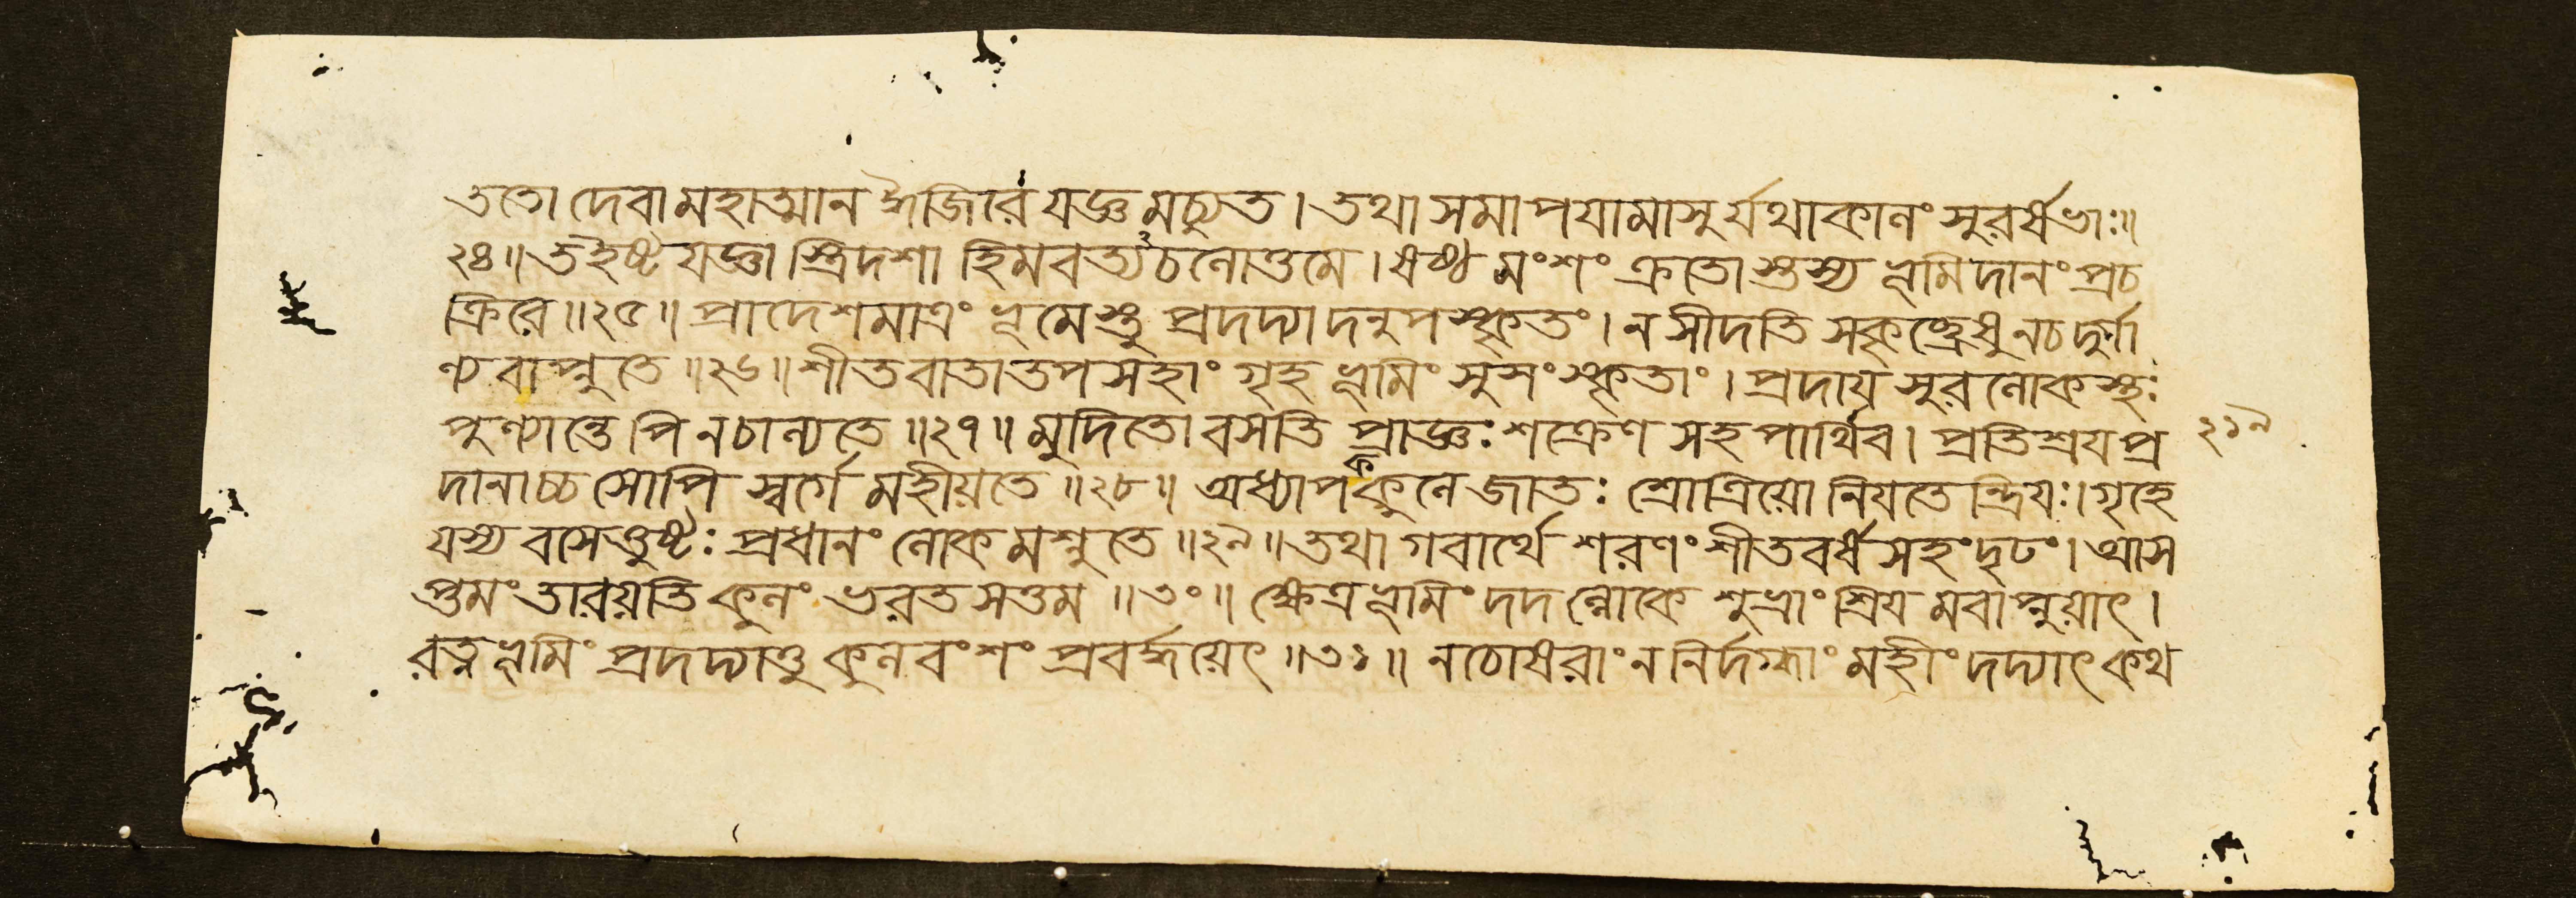 ততো দেবা মহাত্মান ঈজিরে যজ্ঞমচ্যুত। তথা সমাপযামাসুর্যথাকালং সুরর্ষভাঃ॥
২৪॥ ত ইষ্টযজ্ঞাস্ত্রিদশা হিমবত্যচলোত্তমে। ষষ্ঠমংশং ক্রতোস্তস্য ভূমিদানং প্রচ
ক্রিরে॥২৫॥ প্রাদেশমাত্রং ভূমেস্তু প্রদদ্যাদনুপস্কৃতং। ন সীদতি স কৃচ্ছ্রেষু ন চ দুর্গা
ণ্যবাপ্নুতে॥২৬॥ শীতবাতাতপসহাং গৃহভূমিং সুসংস্কৃতাং। প্রদায সুরলোকস্থঃ
পুণ্যান্তেপি ন চাল্যতে॥২৭॥ মুদিতো বসতি প্রাজ্ঞঃ শক্রেণ সহ পার্থিব। প্রতিশ্রযপ্র
দানাচ্চ সোপি স্বর্গে মহীয়তে॥২৮॥ অধ্যাপককুলে জাতঃ শ্রোত্রিয়ো নিযতেন্দ্রিযঃ। গৃহে
যস্য বসেত্তুষ্টঃ প্রধানং লোকমশ্নুতে॥২৯॥ তথা গবার্থে শরণং শীতবর্ষসহং দৃঢং। আস
প্তমং তারয়তি কুলং ভরতসত্তম॥৩০॥ ক্ষেত্রভূমিং দদল্লোকে শুভ্রাং শ্রিযমবাপ্নুয়াৎ।
রত্নভূমিং প্রদদ্যাত্তু কুলবংশং প্রবর্দ্ধয়েৎ॥৩১॥ ন চোষরাং ন নির্দগ্ধাং মহীং দদ্যাৎ কথ
২১৯